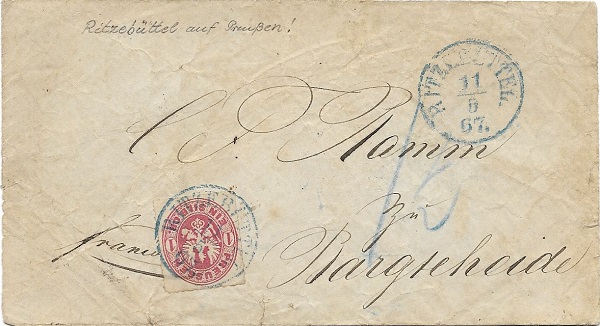 Ritzebüttel auf Preußen!
RITZEBÜTTEL
11
8
67.
C. P. Ramm
zu
Bargscheide
franco
1 EIN SILB. GROSCH. 1
PREUSSEN